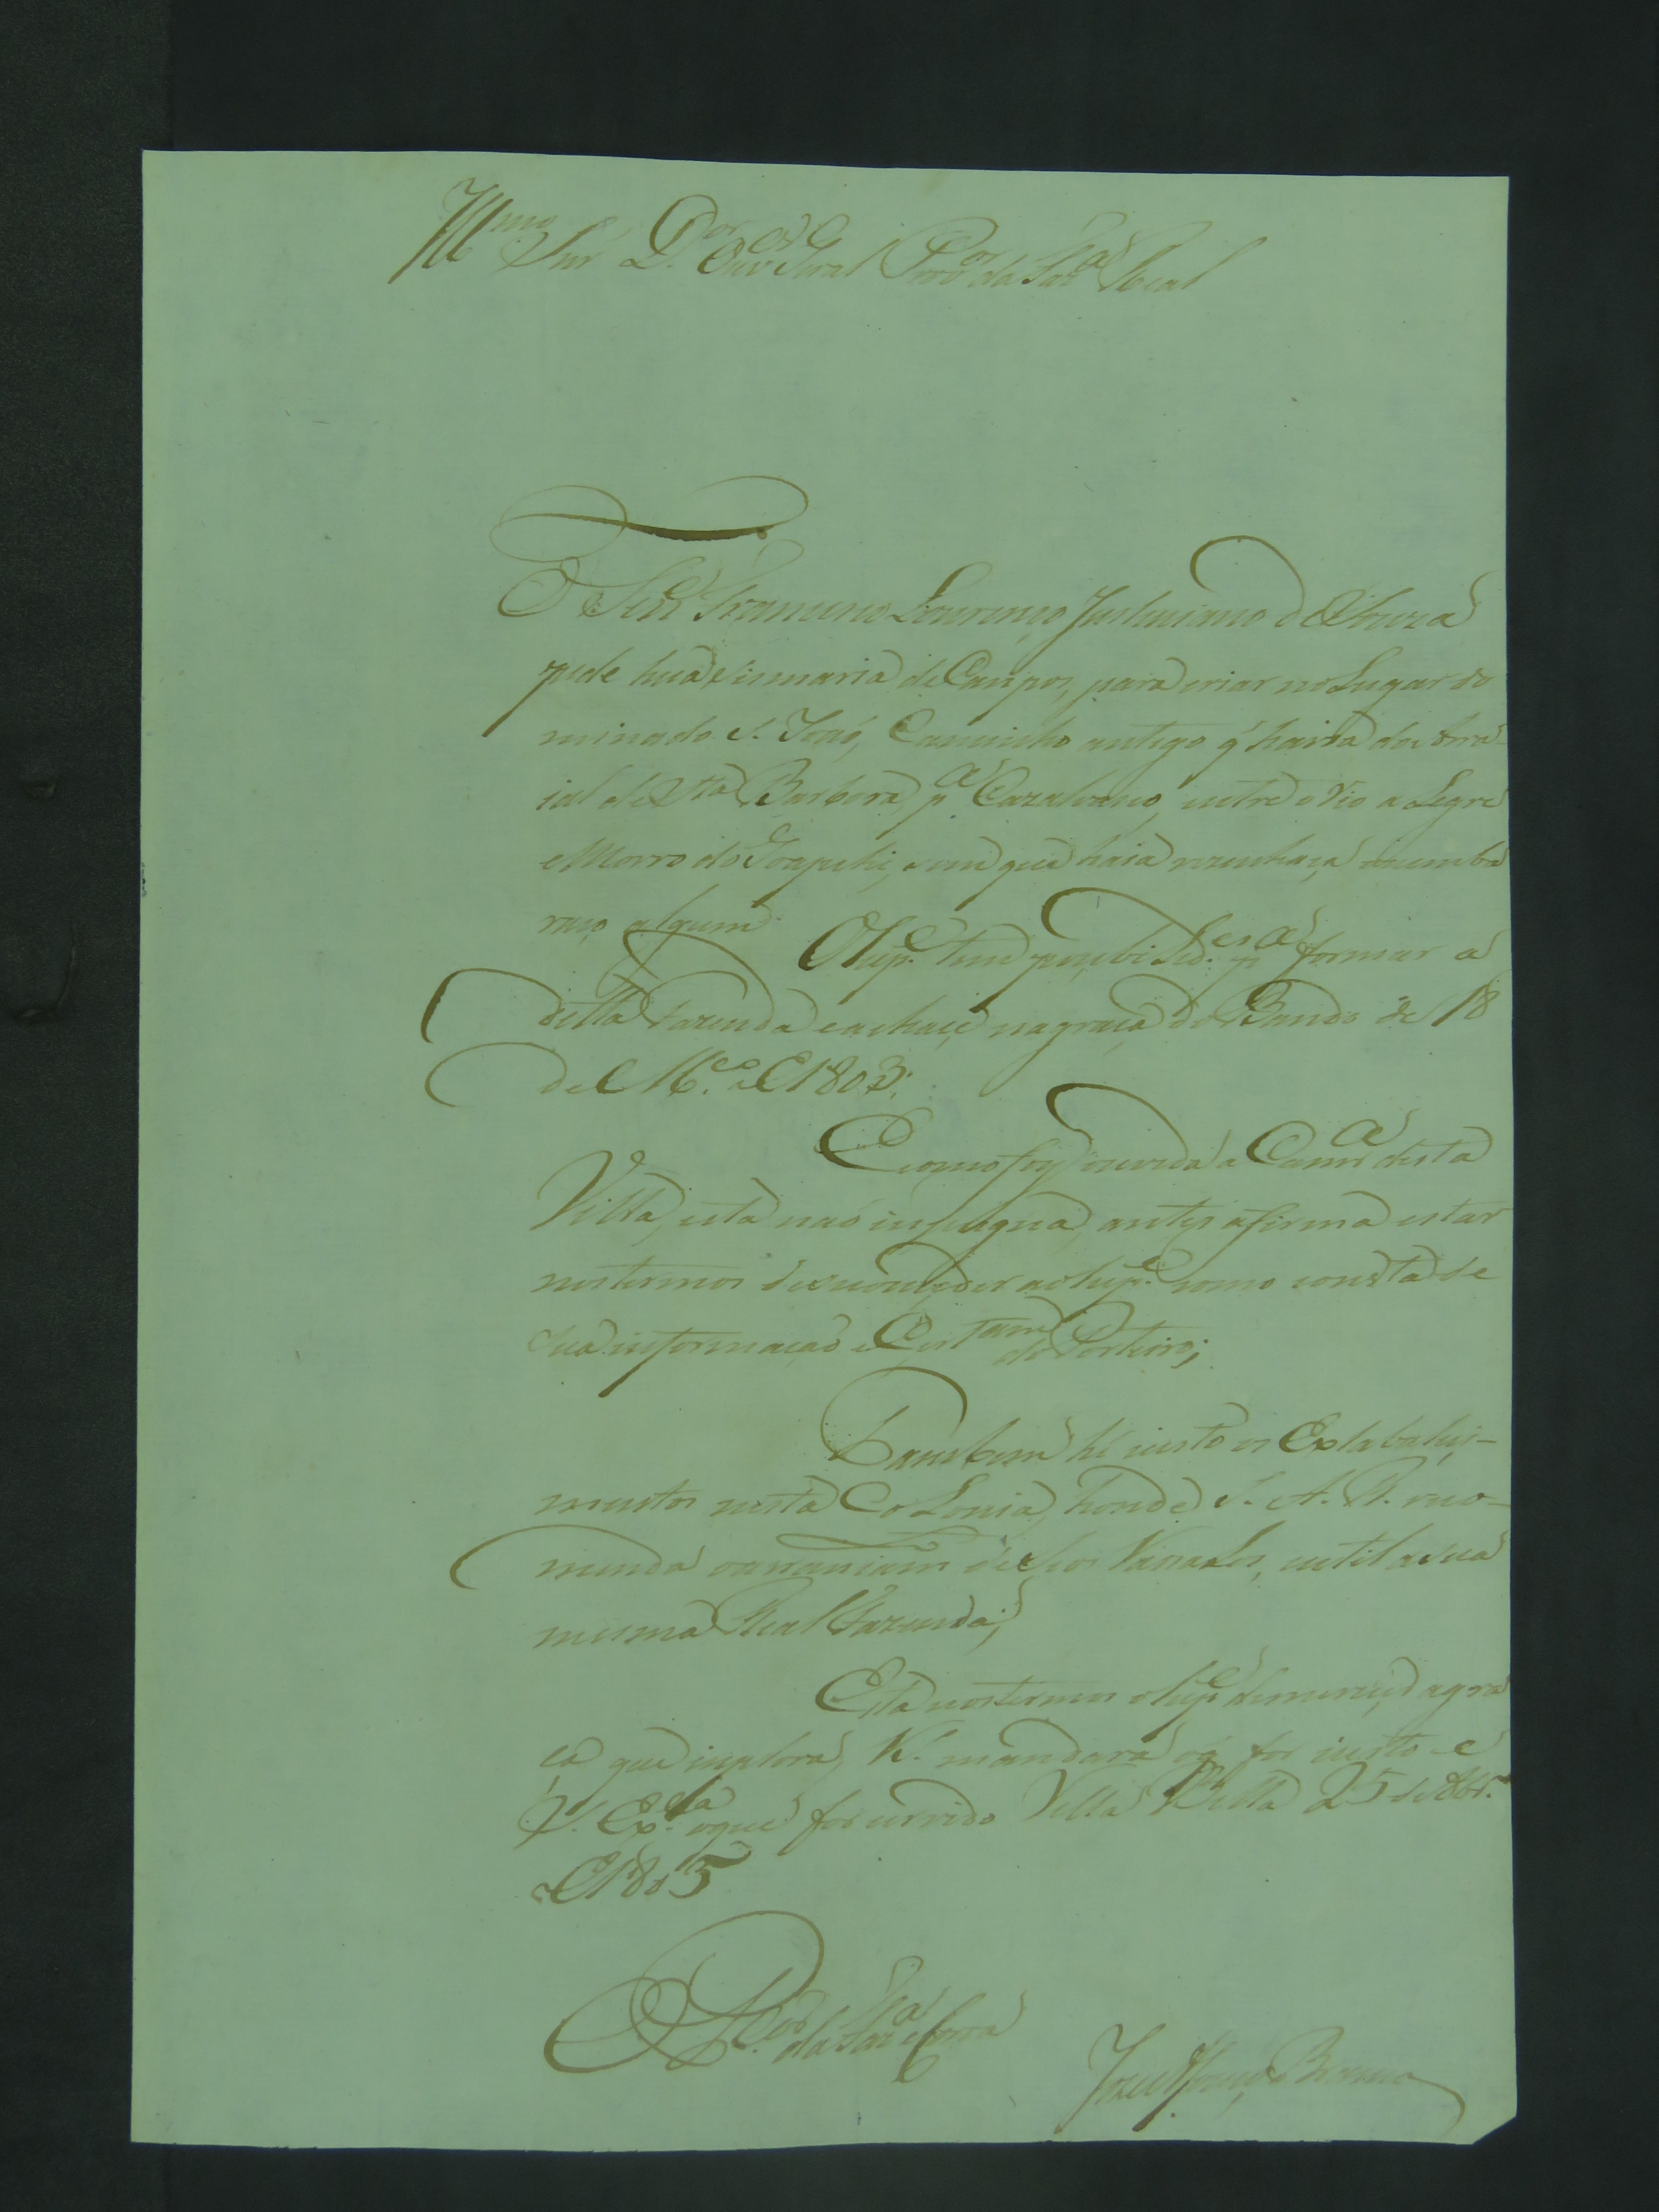 Illmo Snr Dor Ouvor Geral Provor da Fazda Real
O Francisco Lourenço Justiniano d Souza
pede huã sismaria de Campos, para criar no Lugar do
minado S. Joaõ, Caminho antigo q havia do Arra-
ial de Sta Barbora pa Cazalvasco, entre o Rio aLegre
e Morro do sem que haia vezinhaça nemba
raço algum
O Supe tem posibilides pa formar a
ditta Fazenda e achace na graça do Bando de 18
de M.ço d 1803;
E como foy ouvida a Camra desta
Villa, esta naõ inpugna, antes afirma estar
nos termos de se conceder ao Supe como consta de
sua informaçaõ e Certam do Porteiro;
Tambem hé iusto os Extabaleci-
mentos nesta CoLonia, honde S. A. R. reco-
menda de seos Vassalos, e util a sua
mesma Real Fazenda;
Está nos termos o Supe de merecer a gra
ça que inplora, V.S. mandará o q for iusto e
S. Exa o que for servido Villa Bella 25 de Abr.
d 1805
O P.dor da Fazda e Coroa